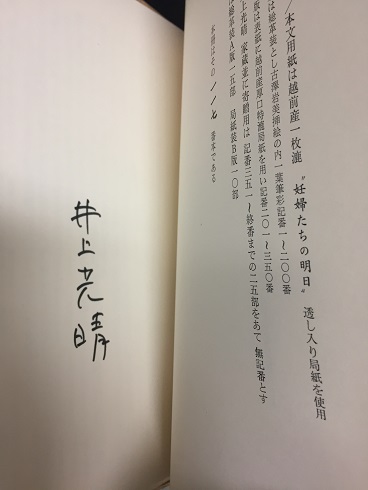 /本文用紙は越前産一枚漉 “妊婦たちの明日” 透し入り局紙を使用
は総革装とし古澤岩美挿絵の内一葉筆彩記番一〜二〇〇番
版は表紙に越前産厚口特漉局紙を用い記番二〇一〜三五〇番
上光晴 家蔵並に寄贈用は 記番三五一〜終番までの二五部をあて 無記番とす
総革装A版一五部 局紙装B版一〇部
本冊はその 一一七 番本である
井上光晴